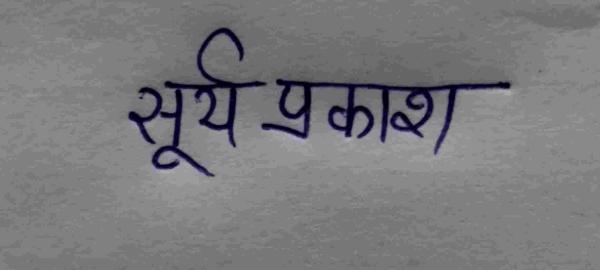 सूर्य प्रकाश